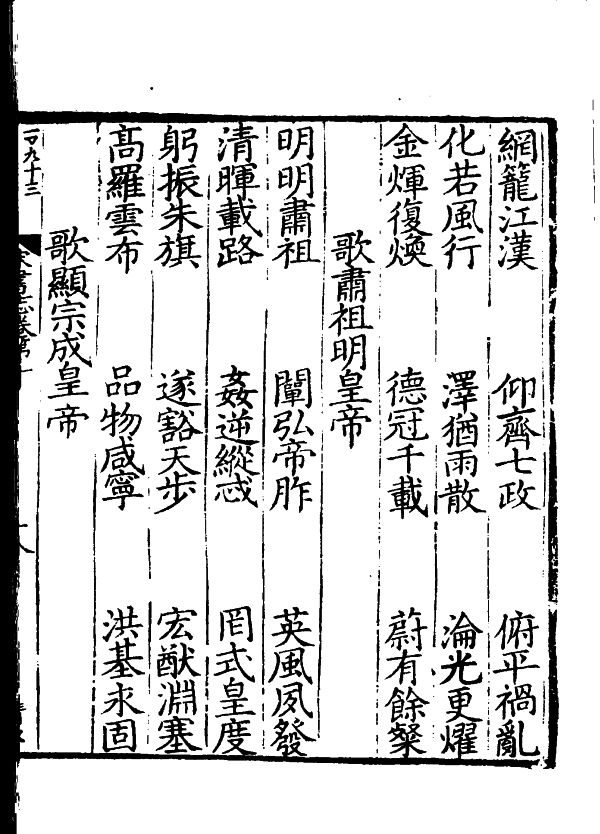 網籠江漢　仰齊七政　俯平禍亂
化若風行　澤猶雨散　淪光更燿
金煇復煥　德冠千載　蔚有餘粲
歌肅祖明皇帝
明明肅祖　闡弘帝胙　英風夙發
清暉載路　姦逆縱忒　罔式皇度
躬振朱旗　遂豁天步　宏猷淵塞
髙羅雲布　品物咸寧　洪基永固
歌顯宗成皇帝
九十三